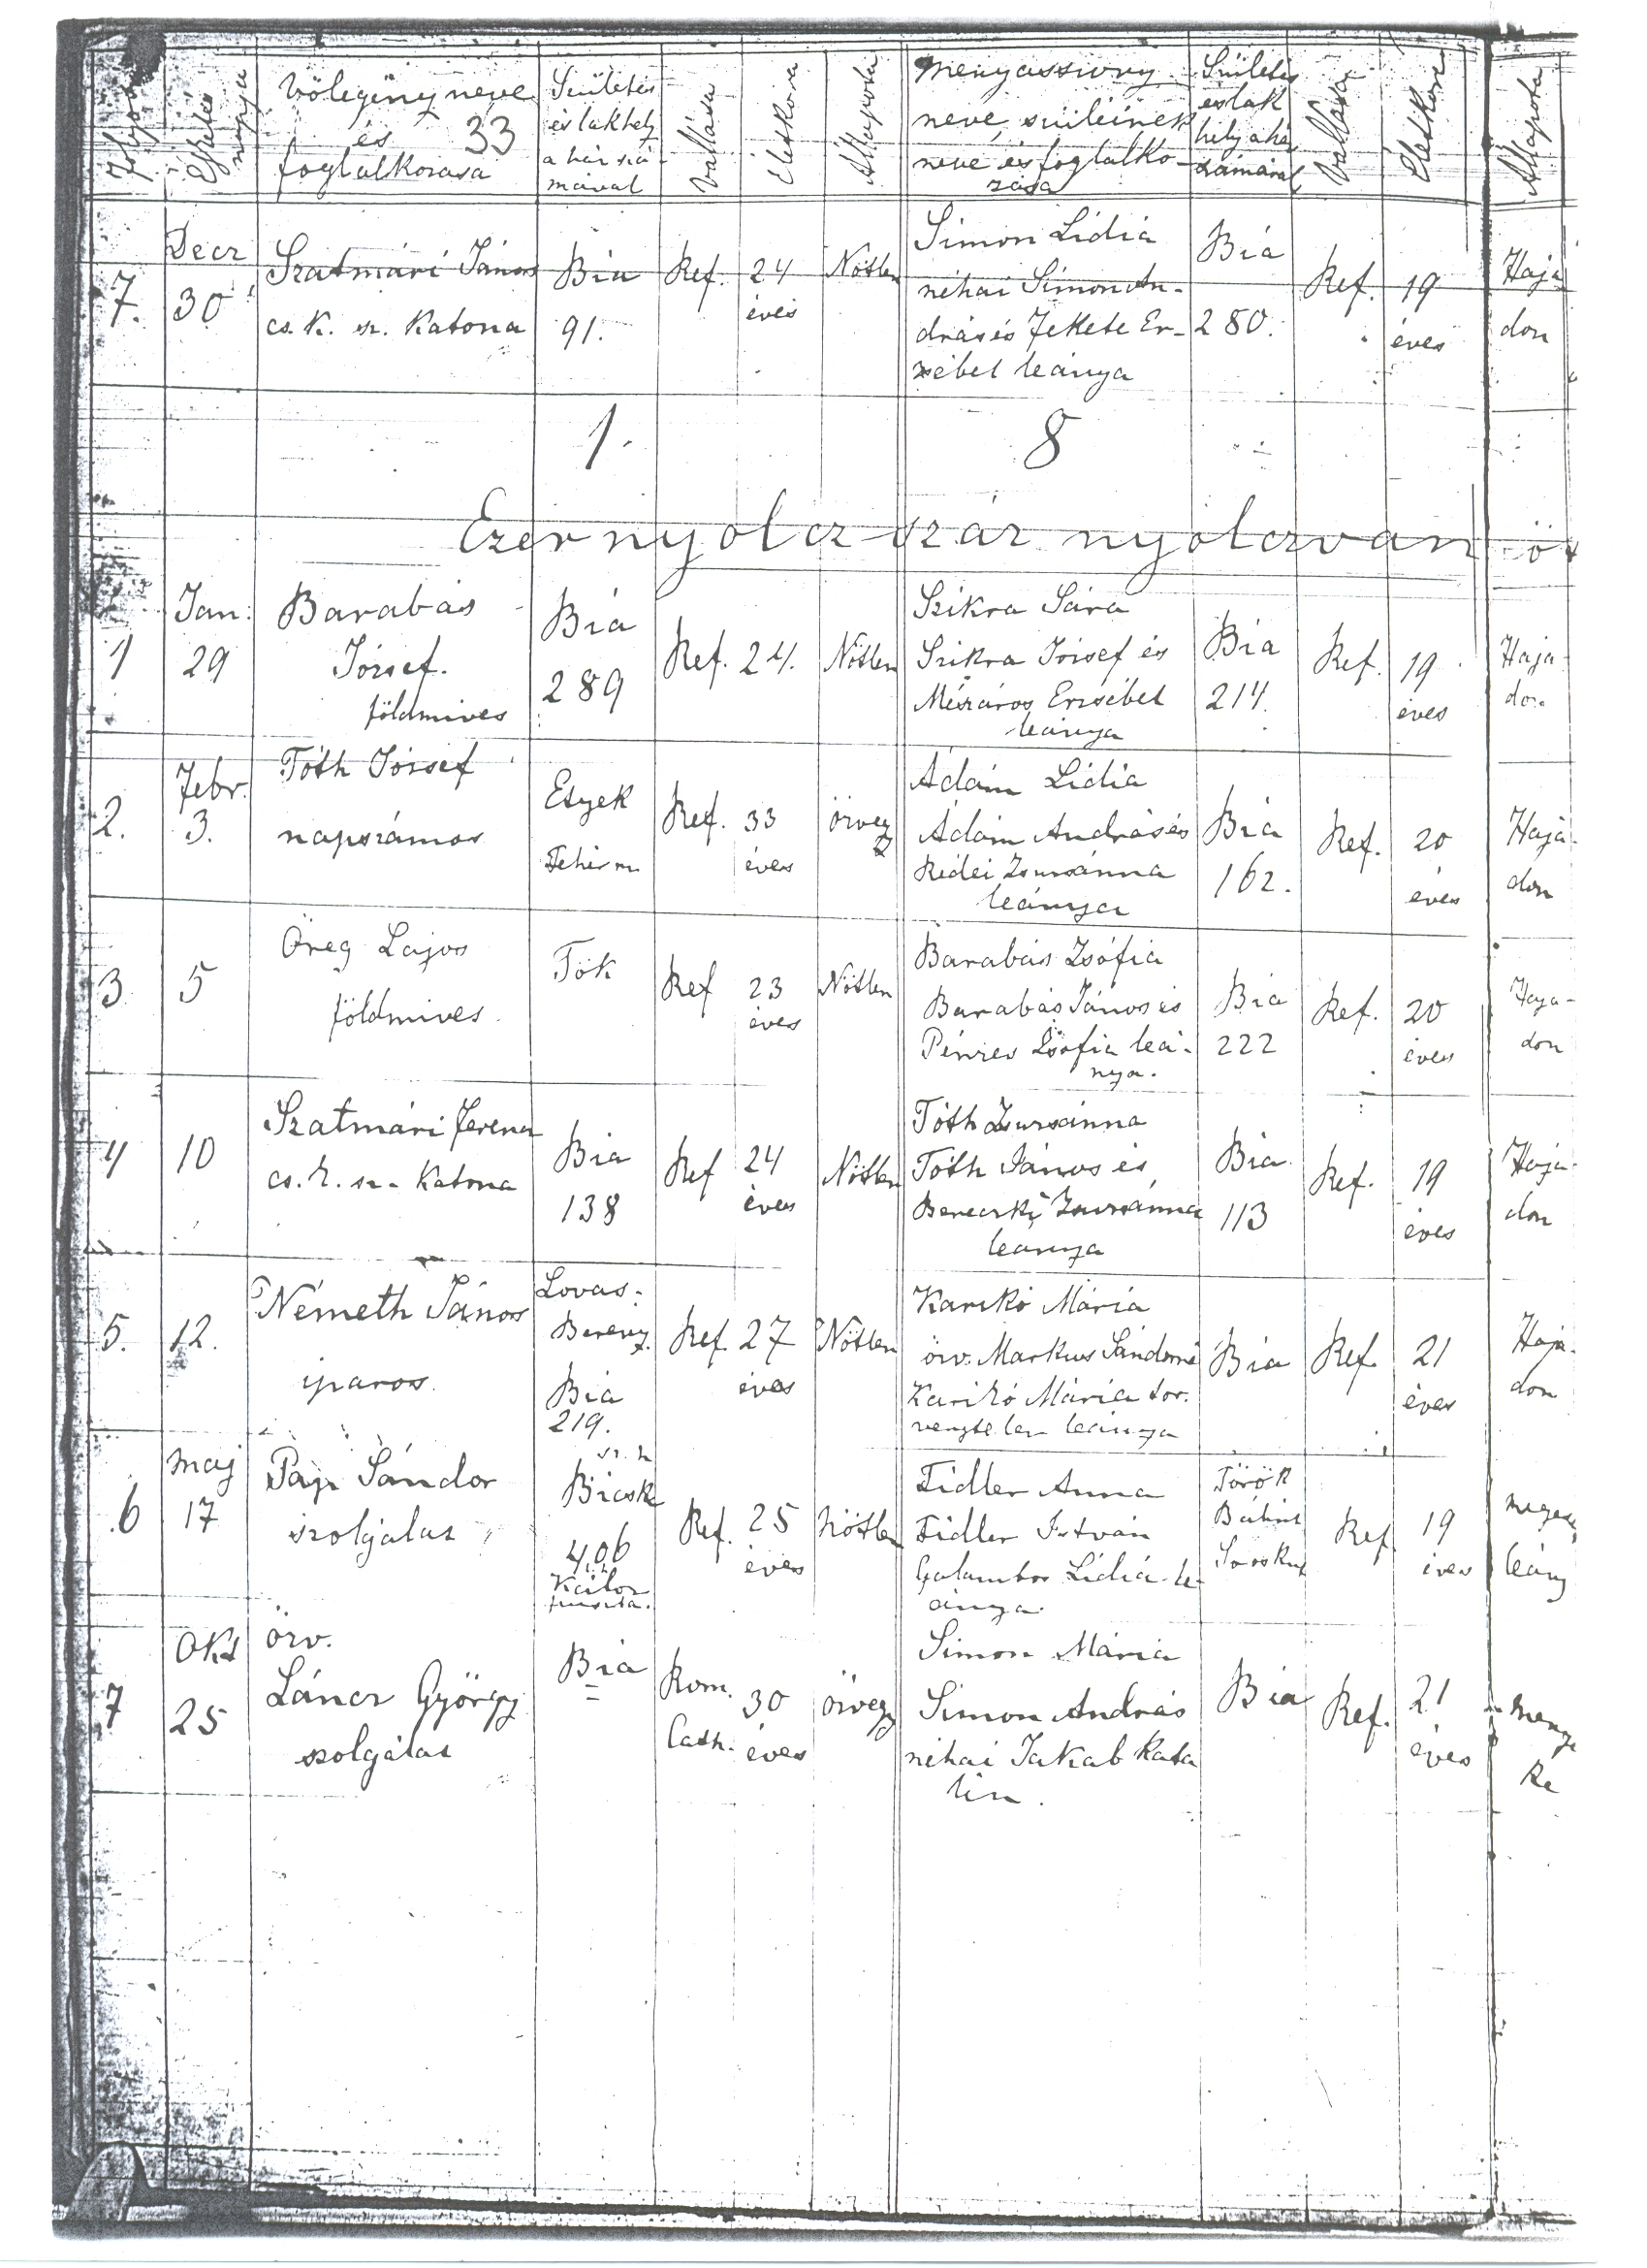 Folyószám
Esketés napja
Vőlegény neve
és 33
foglalkozása
Születés
és lakhely
a ház szá-
mával
Vallása
Életkora
Állapota
Menyasszony
neve, szüleinek
neve és foglalko-
zása
Születés
és lak
hely a ház
számával
Vallása
Életkora
Állapota
7.
Decz
30
Szatmári János
cs. k. sz. Katona
Bia
91.
Ref.
24
éves
Nőtlen
Simon Lidia
néhai Simon An-
drás és Fekete Er-
zsébet leánya
Bia
280.
Ref.
19
éves
Haja
don
1. 8
Ezernyolcz száz nyolczvan öt
1
Jan.
29
Barabás
József.
földmives
Bia
289
Ref.
24.
Nőtlen
Szikra Sára
Szikra József és
Mészáros Erzsébet
leánya
Bia
214.
Ref.
19
éves
Haja
don
2.
Febr.
3.
Tóth József
napszámos
Etyek
Fehér m
Ref.
33
éves
özvegy
Ádám Lidia
Ádám András és
Rédei Zsuzsánna
leánya
Bia
162.
Ref.
20
éves
Haja-
don
3
5
Öreg Lajos
földmives
Tök
Ref
23
éves
Nőtlen
Barabás Zsófia
Barabás János és
Pénzes Zsófia leá-
nya.
Bia
222
Ref.
20
éves
Haja-
don
4
10
Szatmári Ferencz
cs. k. sz. Katona
Bia
138
Ref
24
éves
Nőtlen
Tóth Zsuzsánna
Tóth János és
Bereczki Zsuzsánna
leánya
Bia
113
Ref.
19
éves
Haja-
don
5.
12.
Németh János
iparos.
Lovas-
Berény.
Bia
219.
Ref.
27
éves
Nőtlen
Karikó Mária
özv. Markus Sándorné
Karikó Mária tör.
vénytelen leánya
Bia
Ref.
21
éves
Haja-
don
6
maj
17
Pap Sándor
szolgálat
sz. h
Bicske
406
puszta.
Ref.
25
éves
Nőtlen
Fidler Anna
Fidler István
Galambos Lídiá le-
ánya.
Török
Bálint
Ref
19
éves
leány
7
Okt
25
özv.
Láncz György
szolgálat
Bia
Rom.
Cath.
30
éves
özvegy
Simon Mária
Simon András
néhai Jakab Kata
lin.
Bia
Ref.
21
éves